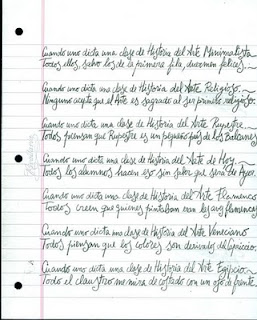 Cuando uno dicta una clase de Historia del Arte Minimalista
Todos ellos, salvo los de la primera fila, duermen felices.
Cuando uno dicta una clase de Historia del Arte Religioso
Ninguno acepta que el Arte es sagrado al ser primero religioso.
Cuando uno dicta una clase de Historia del Arte Rupestre
Todos piensan que Rupestre es un pequeño país de los Balcanes
Cuando uno dicta una clase de Historia del Arte de Hoy
Todos los alumnos hacen eso sin saber que será de Ayer.
Cuando uno dicta una clase de Historia del Arte Flamenco
Todos creen que quienes pintaban eran los flamencos
Cuando uno dicta una clase de Historia del Arte Veneciano
Todos piensan que los colores son derivados del
Cuando uno dicta una clase de Historia del Arte Egipcio
Todo el claustro me mira de costado con un ojo de frente.